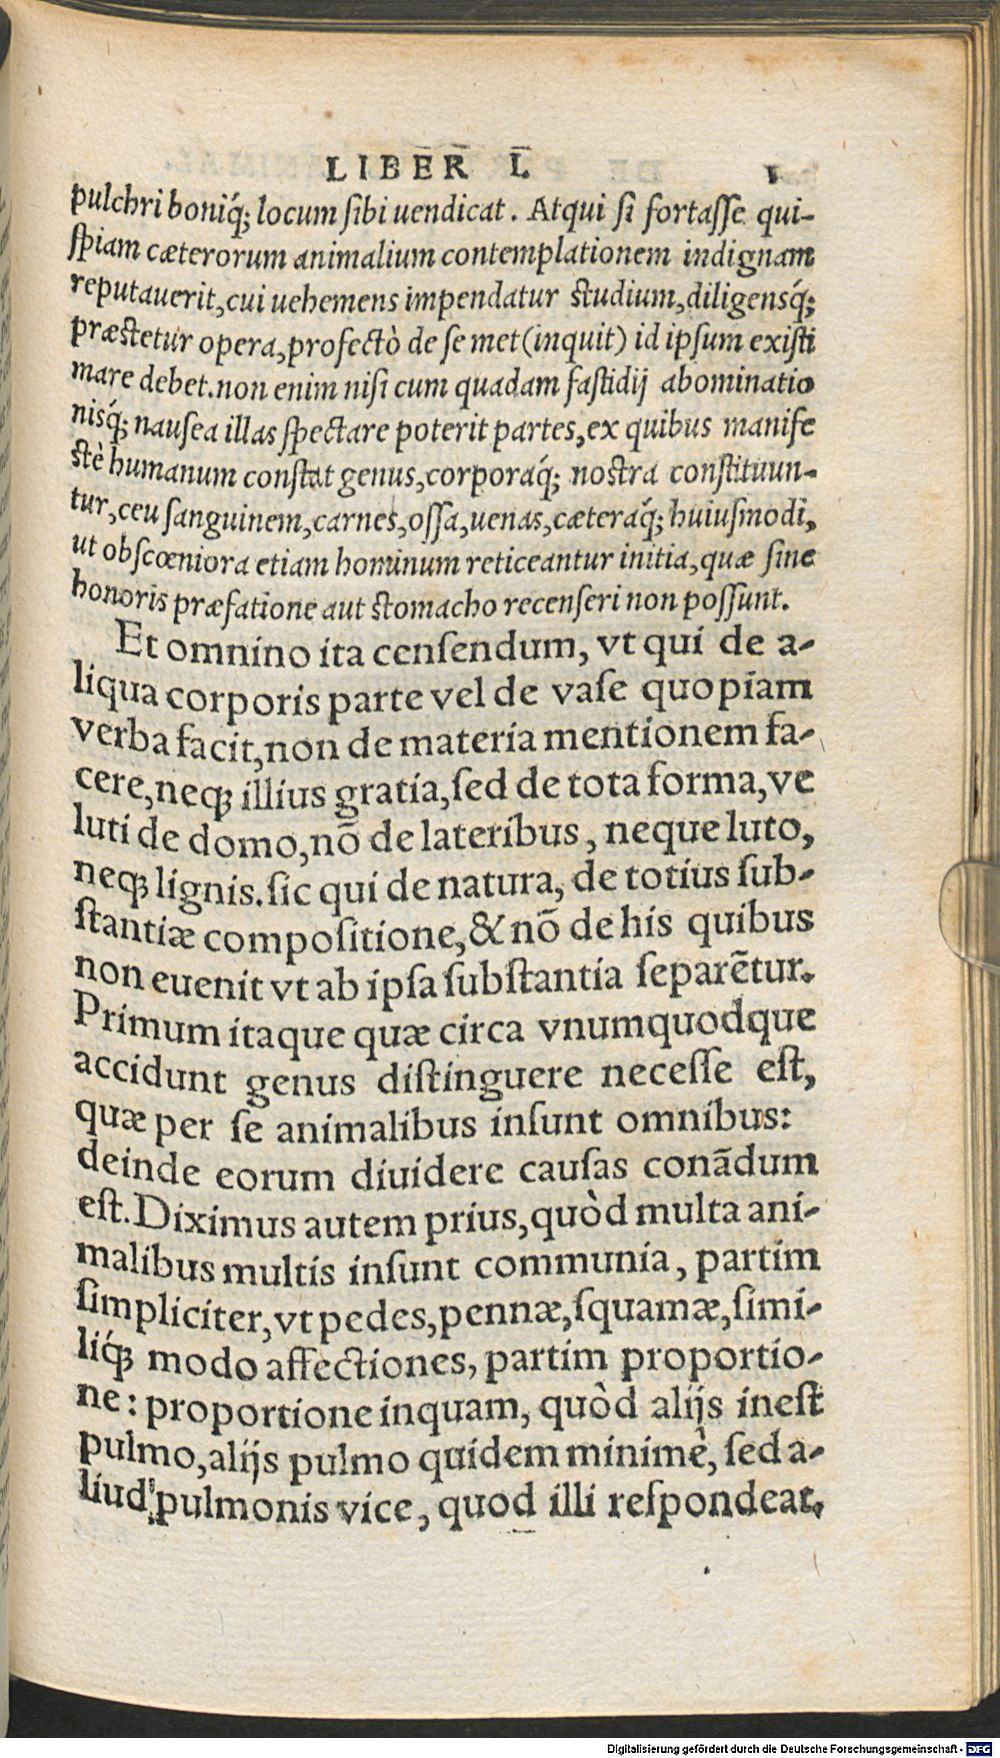 LIBER I. 1
pulchri boniq́; locum ſibi uendicat. Atqui ſi fortaſſe qui-
ſpiam cæterorum animalium contemplationem indignam
reputauerit, cui uehemens impendatur ſtudium, diligensq́;
præſtetur opera, profectò de ſe met (inquit) id ipſum exiſti
mare debet. non enim niſi cum quadam faſtidij abominatio
nisq́; nauſea illas ſpectare poterit partes, ex quibus manife
ſtè humanum conſtat genus, corporaq́; noſtra conſtituun-
tur, ceu ſanguinem, carnes, oſſa, uenas, cæteraq́; huiuſmodi,
ut obſcœniora etiam hominum reticeantur initia, quæ ſine
honoris præfatione aut ſtomacho recenſeri non poſſunt.
Et omnino ita cenſendum, vt qui de a-
liqua corporis parte vel de vaſe quopiam
verba facit, non de materia mentionem fa-
cere, neq; illius gratia, ſed de tota forma, ve
luti de domo, nõ de lateribus, neque luto,
neq; lignis. ſic qui de natura, de totius ſub-
ſtantiæ compoſitione, & nõ de his quibus
non euenit vt ab ipſa ſubſtantia ſeparẽtur.
Primum itaque quæ circa vnumquodque
accidunt genus diſtinguere neceſſe eſt,
quæ per ſe animalibus inſunt omnibus:
deinde eorum diuidere cauſas conãdum
eſt. Diximus autem prius, quòd multa ani-
malibus multis inſunt communia, partim
ſimpliciter, vt pedes, pennæ, ſquamæ, ſimi-
liq́; modo affectiones, partim proportio-
ne: proportione inquam, quòd alijs ineſt
pulmo, alijs pulmo quidem minimè, ſed a-
liud pulmonis vice, quod illi reſpondeat.
Digitalisierung gefördert durch die Deutsche Forschungsgemeinschaft - DFG